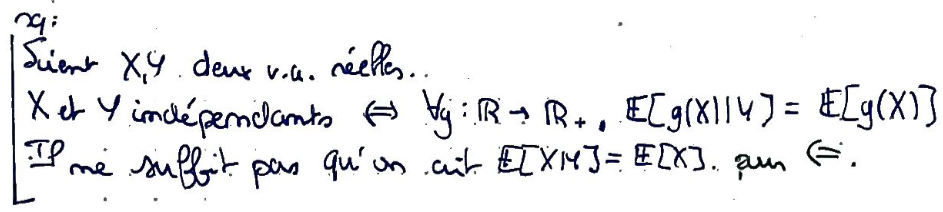 rq:
Soient X,Y deux v.a. réelles..
X et Y indépendants ⇔ ∀g: ℝ → ℝ₊, 𝔼[g(X)|Y] = 𝔼[g(X)]
Il ne suffit pas qu'on ait 𝔼[X|Y] = 𝔼[X]. pour ⇐.